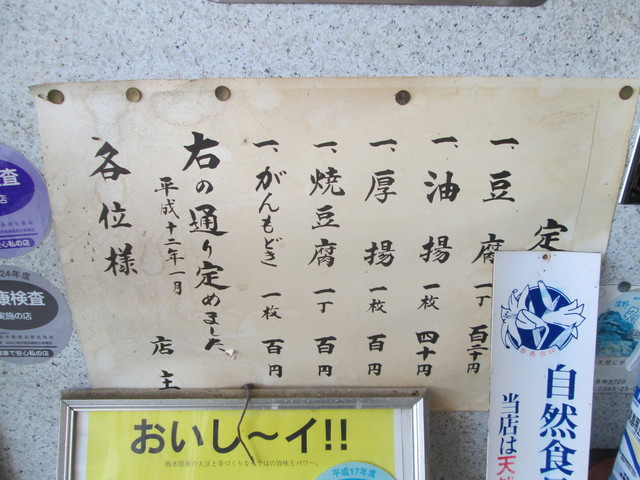 定
一、豆腐 一丁 百二十円
一、油揚 一枚 四十円
一、厚揚 一枚 百円
一、焼豆腐 一丁 百円
一、がんもどき 一枚 百円
右の通り定めました
平成十二年一月
店主
各位様
おいし〜イ!!
平成17年度
自然食
当店は天然
査
店
安心私の店
24年度
康検査
実施の店